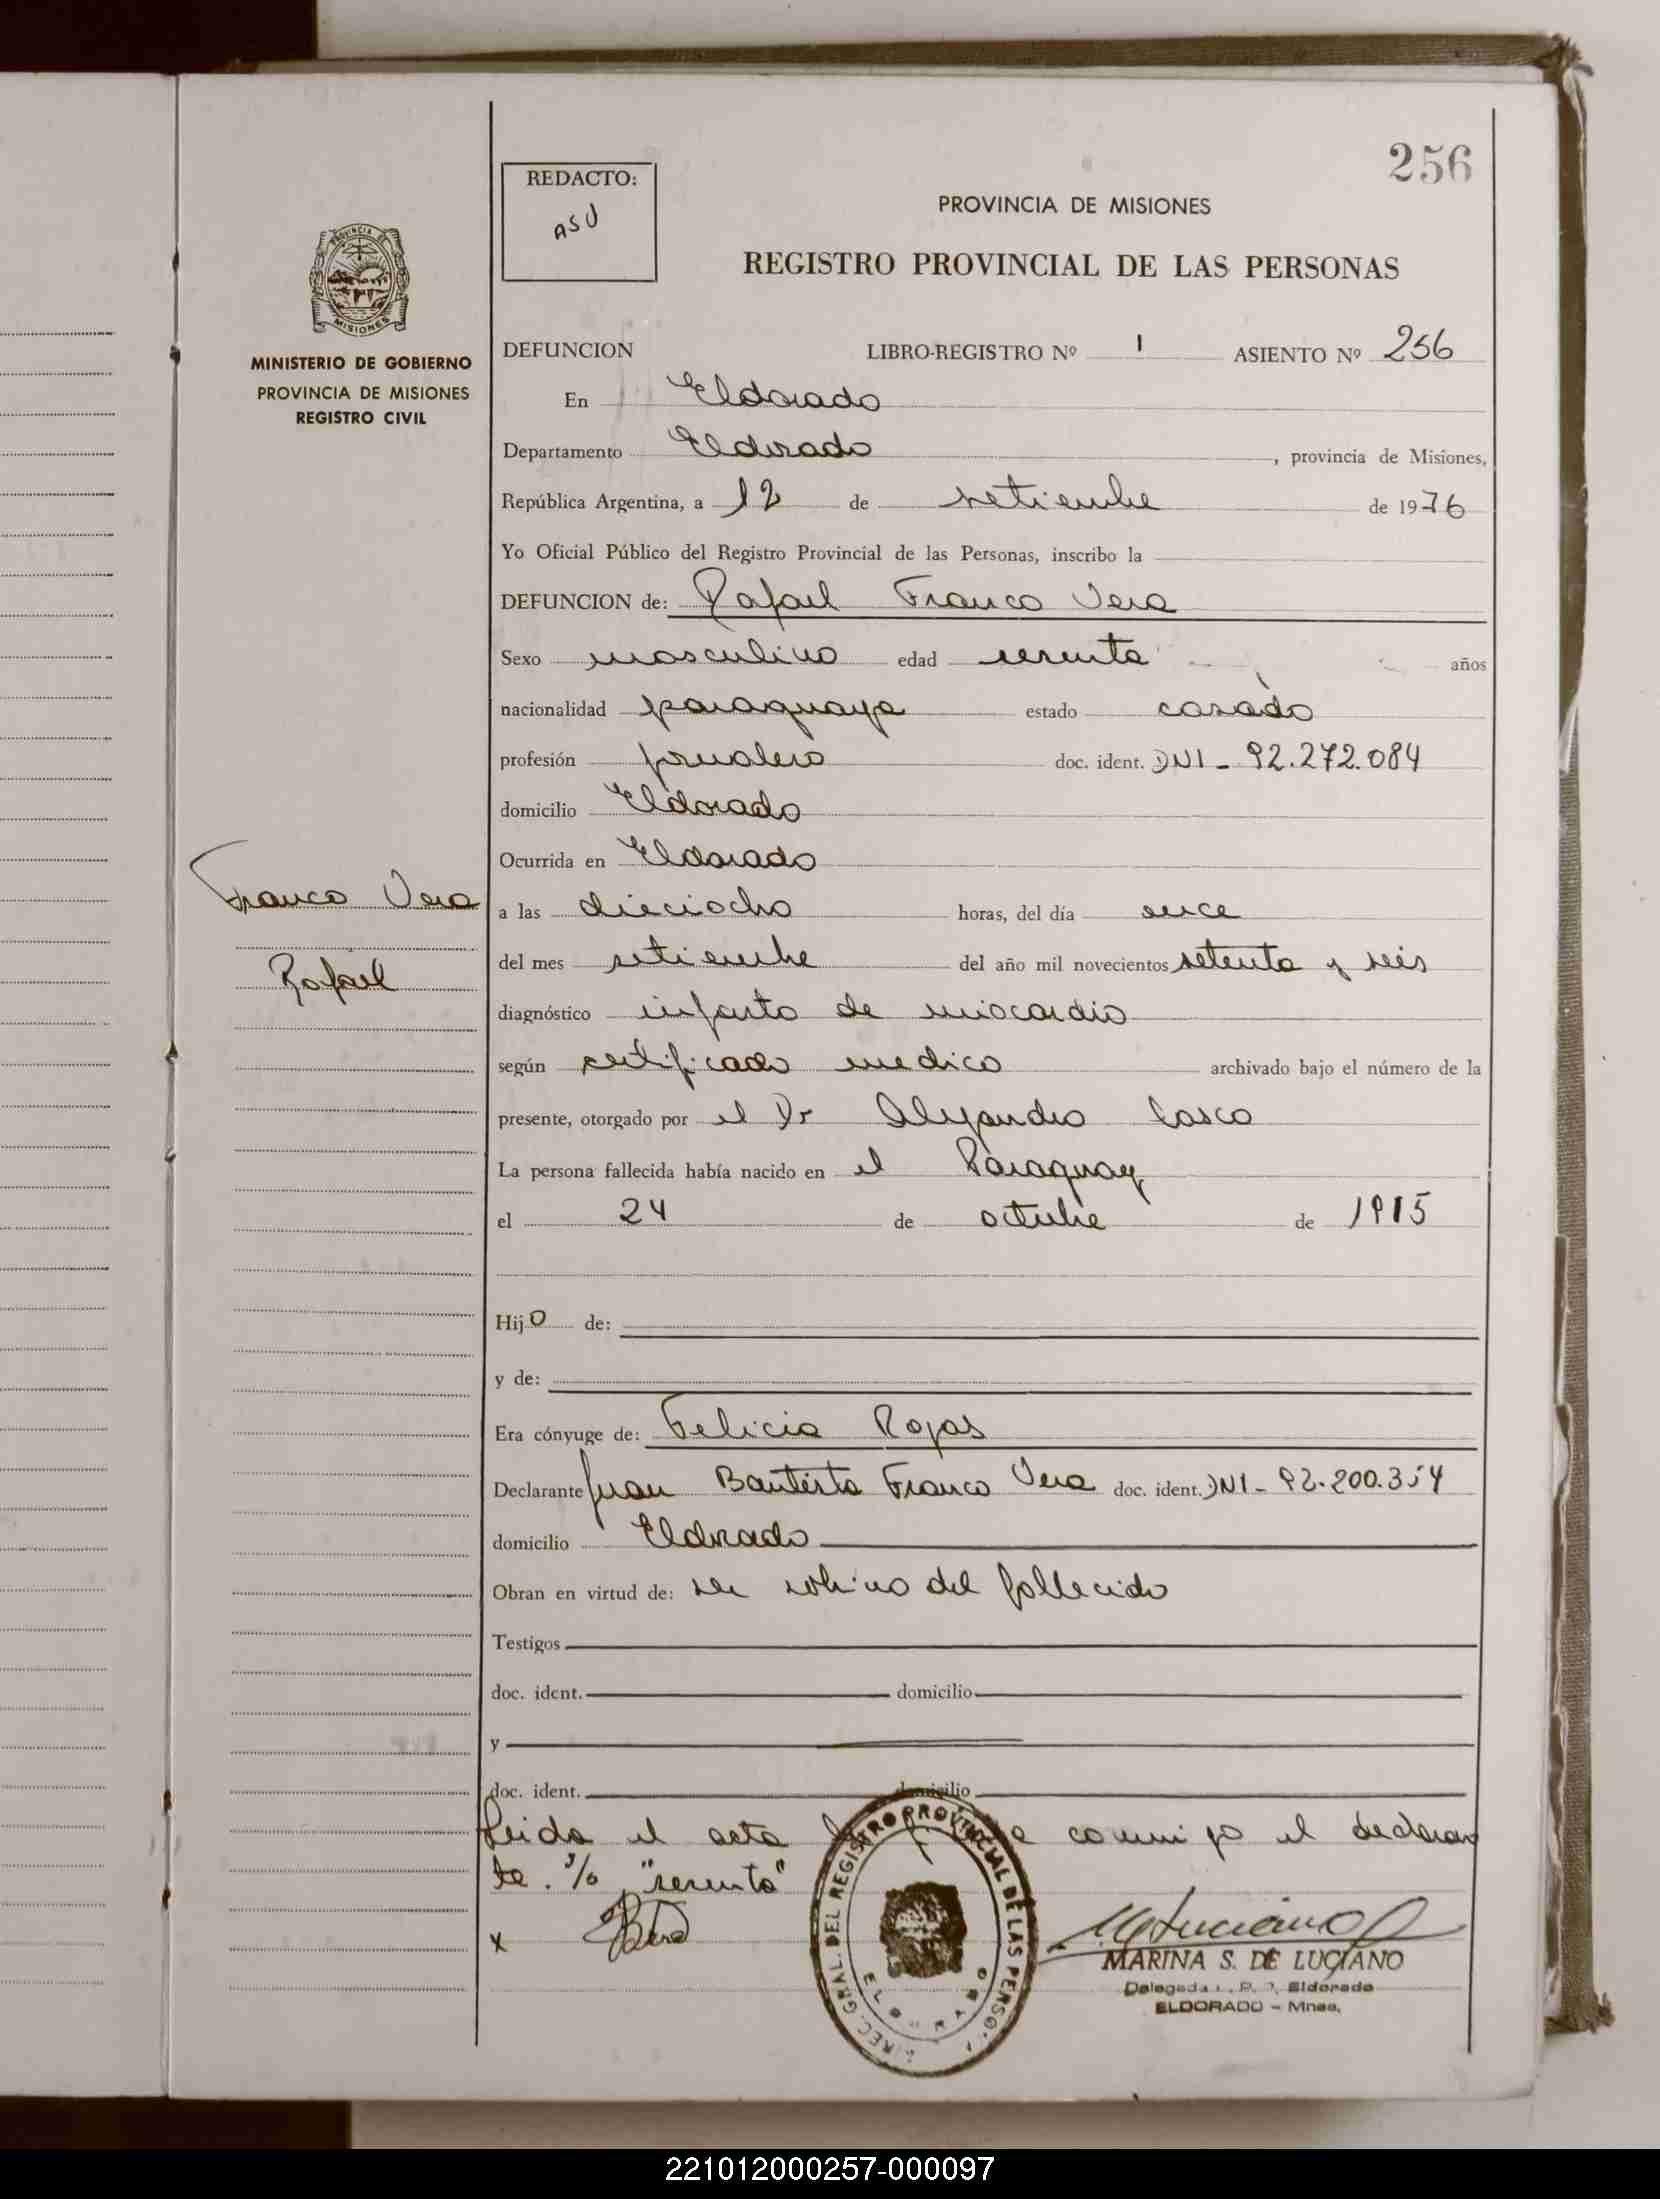 256
REDACTO:
ASU
PROVINCIA DE MISIONES
REGISTRO PROVINCIAL DE LAS PERSONAS
PROVINCIA DE
MISIONES
MINISTERIO DE GOBIERNO
PROVINCIA DE MISIONES
REGISTRO CIVIL
DEFUNCION LIBRO-REGISTRO Nº 1 ASIENTO Nº 256
En Eldorado
Departamento Eldorado, provincia de Misiones,
República Argentina, a 12 de setiembre de 1976
Yo Oficial Público del Registro Provincial de las Personas, inscribo la
DEFUNCION de: Rafael Franco Vera
Sexo masculino edad sesenta años
nacionalidad paraguaya estado casado
profesión jornalero doc. ident. DNI - 92.272.084
domicilio Eldorado
Ocurrida en Eldorado
Franco Vera
Rafael
a las dieciocho horas, del día once
del mes setiembre del año mil novecientos setenta y seis
diagnóstico infarto de miocardio
según certificado medico archivado bajo el número de la
presente, otorgado por el Dr Alejandro Casco
La persona fallecida había nacido en el Paraguay
el 24 de octubre de 1915
Hijo de:
y de:
Era cónyuge de: Felicia Rojas
Declarante Juan Bautista Franco Vera doc. ident. DNI - 92.200.354
domicilio Eldorado
Obran en virtud de: ser sobrino del fallecido
Testigos
doc. ident. domicilio
y
doc. ident. domicilio
Leida el acta conmigo el declaran
te. "sesenta"
x
DIREC. GRAL. DEL REGISTRO PROVINCIAL DE LAS PERSONAS
ELDORADO
MARINA S. DE LUCIANO
Delegada R. P. P. Eldorado
ELDORADO - Mnes.
221012000257-000097